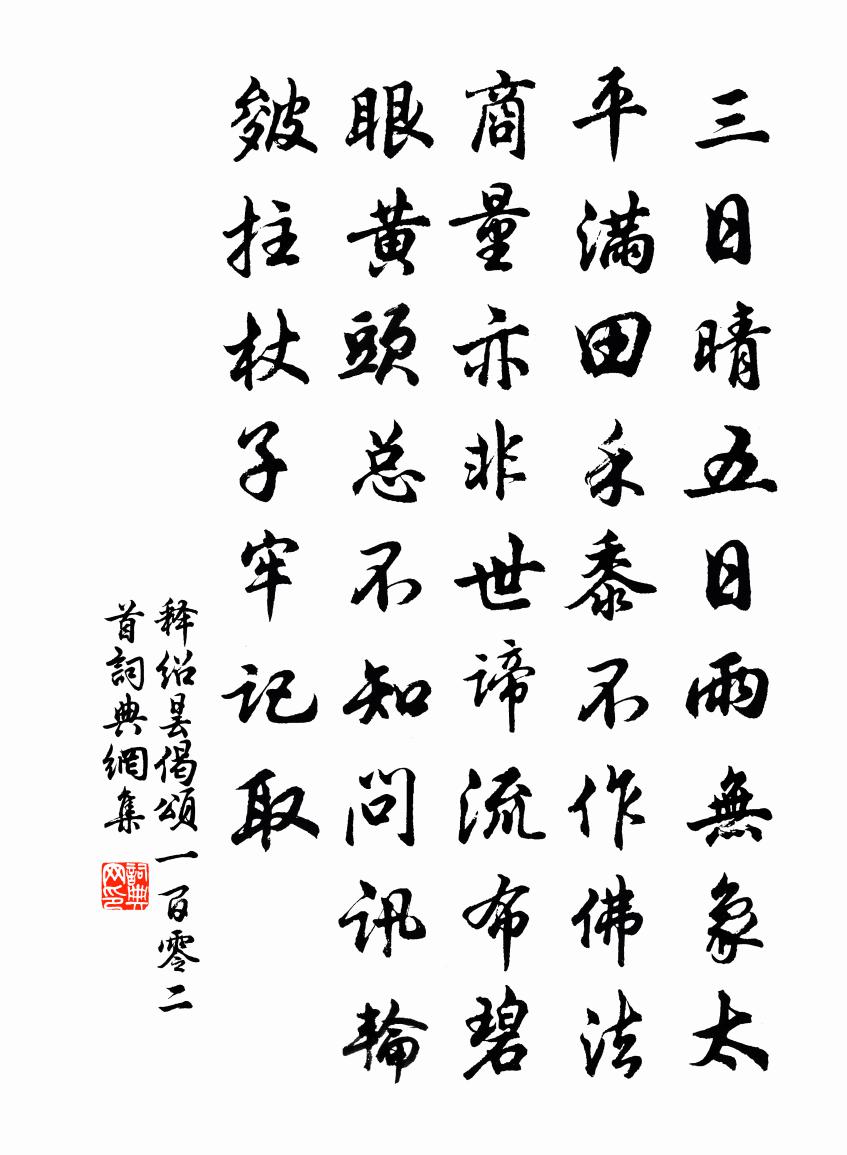 三日晴五日雨無象太
平滿田禾黍不作佛法
商量亦非世諦流布碧
眼黃頭总不知問訊輪
皴拄杖子牢記取
释紹曇偈頌一百零二
首詞典網集
詞典网印